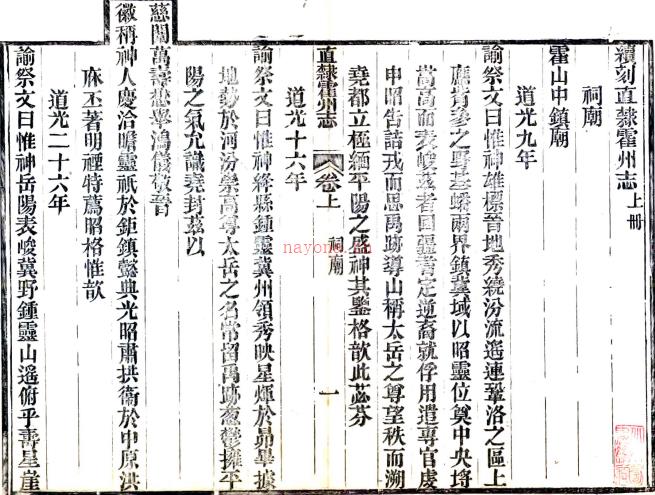 續刻直隸霍州志上冊
祠廟
霍山中鎮廟
道光九年
諭祭文曰惟神雄標晉地秀繞汾流遙連鞏洛之區上
應觜參之野基蟠兩界鎮冀域以昭靈位奠中央埒
嵩高而表峻茲者回疆耆定逆裔就俘用遣專官虔
申昭告詰戎而思禹跡導山稱太岳之尊望秩而溯
堯都立極緬平陽之盛神其鑒格歆此苾芬
直隸霍州志
卷上
祠廟
一
道光十六年
諭祭文曰惟神絳縣鍾靈冀州領秀映星煇於昴畢據
地勢於河汾崇高尊太岳之名常留禹跡蔥鬱擁平
陽之氣允識堯封茲以
慈闈萬壽懋舉鴻儀敬晉
徽稱神人慶洽瞻靈祇於鉅鎮懿典光昭肅拱衞於中原洪
庥丕著明禋特薦昭格惟歆
道光二十六年
諭祭文曰惟神岳陽表峻冀野鍾靈山遙俯乎壽星崖
nayona.cn